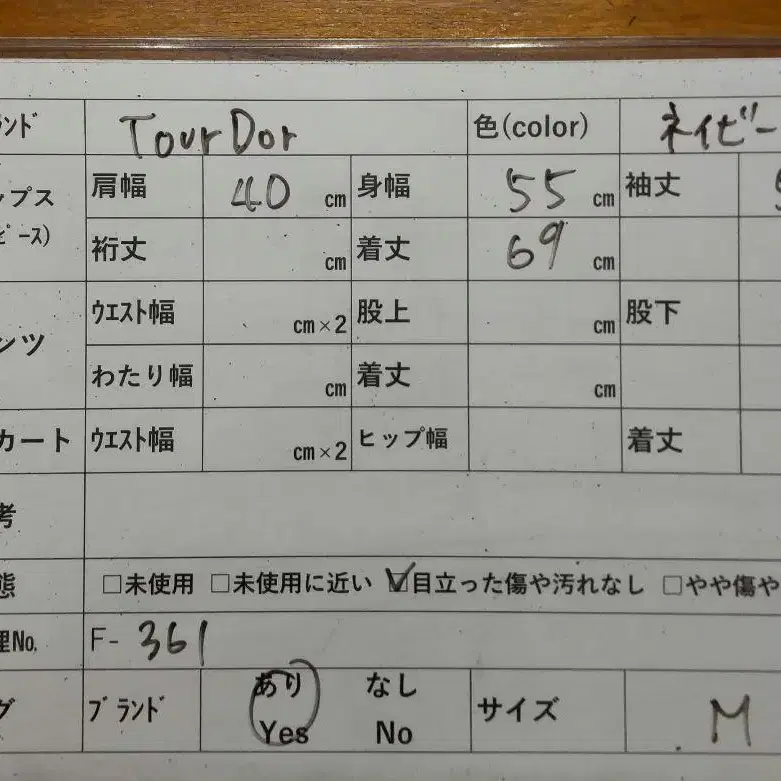 ンド TourDor 色(color) ネイビー
ップス 肩幅 40 cm 身幅 55 cm 袖丈
ピース) 裄丈 cm 着丈 69 cm
ンツ ウエスト幅 cm×2 股上 cm 股下
わたり幅 cm 着丈 cm
カート ウエスト幅 cm×2 ヒップ幅 着丈
考
態 □未使用 □未使用に近い ☑目立った傷や汚れなし □やや傷や
理No. F- 361
グ ブランド あり Yes なし No サイズ M